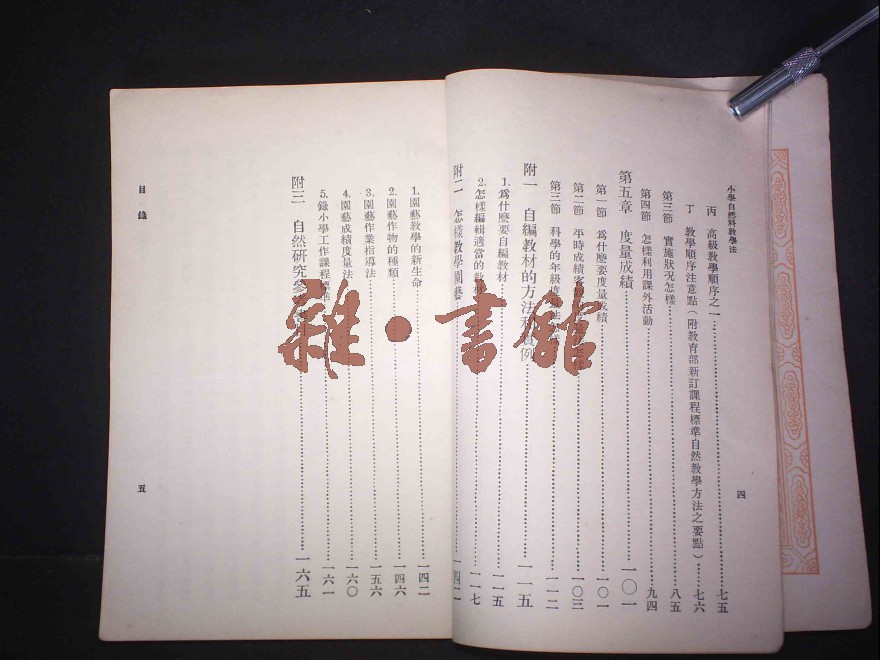 小學自然科教學法
四
丙 高級教學順序之一……七五
丁 教學順序注意點(附教育部新訂課程標準自然教學方法之要點)……七六
第三節 實施狀況怎樣……八五
第四節 怎樣利用課外活動……九四
第五章 度量成績……一〇一
第一節 爲什麼要度量成績……一〇一
第二節 平時成績……一〇三
第三節 科學的年級度……一一二
附一 自編教材的方法 例……一一五
1.爲什麼要自編教材……一一五
2.怎樣編輯適當的教材……一一七
附二 怎樣教學園藝……一四二
1.園藝教學的新生命……一四二
2.園藝作物的種類……一四六
3.園藝作業指導法……一五六
4.園藝成績度量法……一六〇
5.錄小學工作課程標準……一六一
附三 自然研究參……一六五
目錄
五
雜·書館